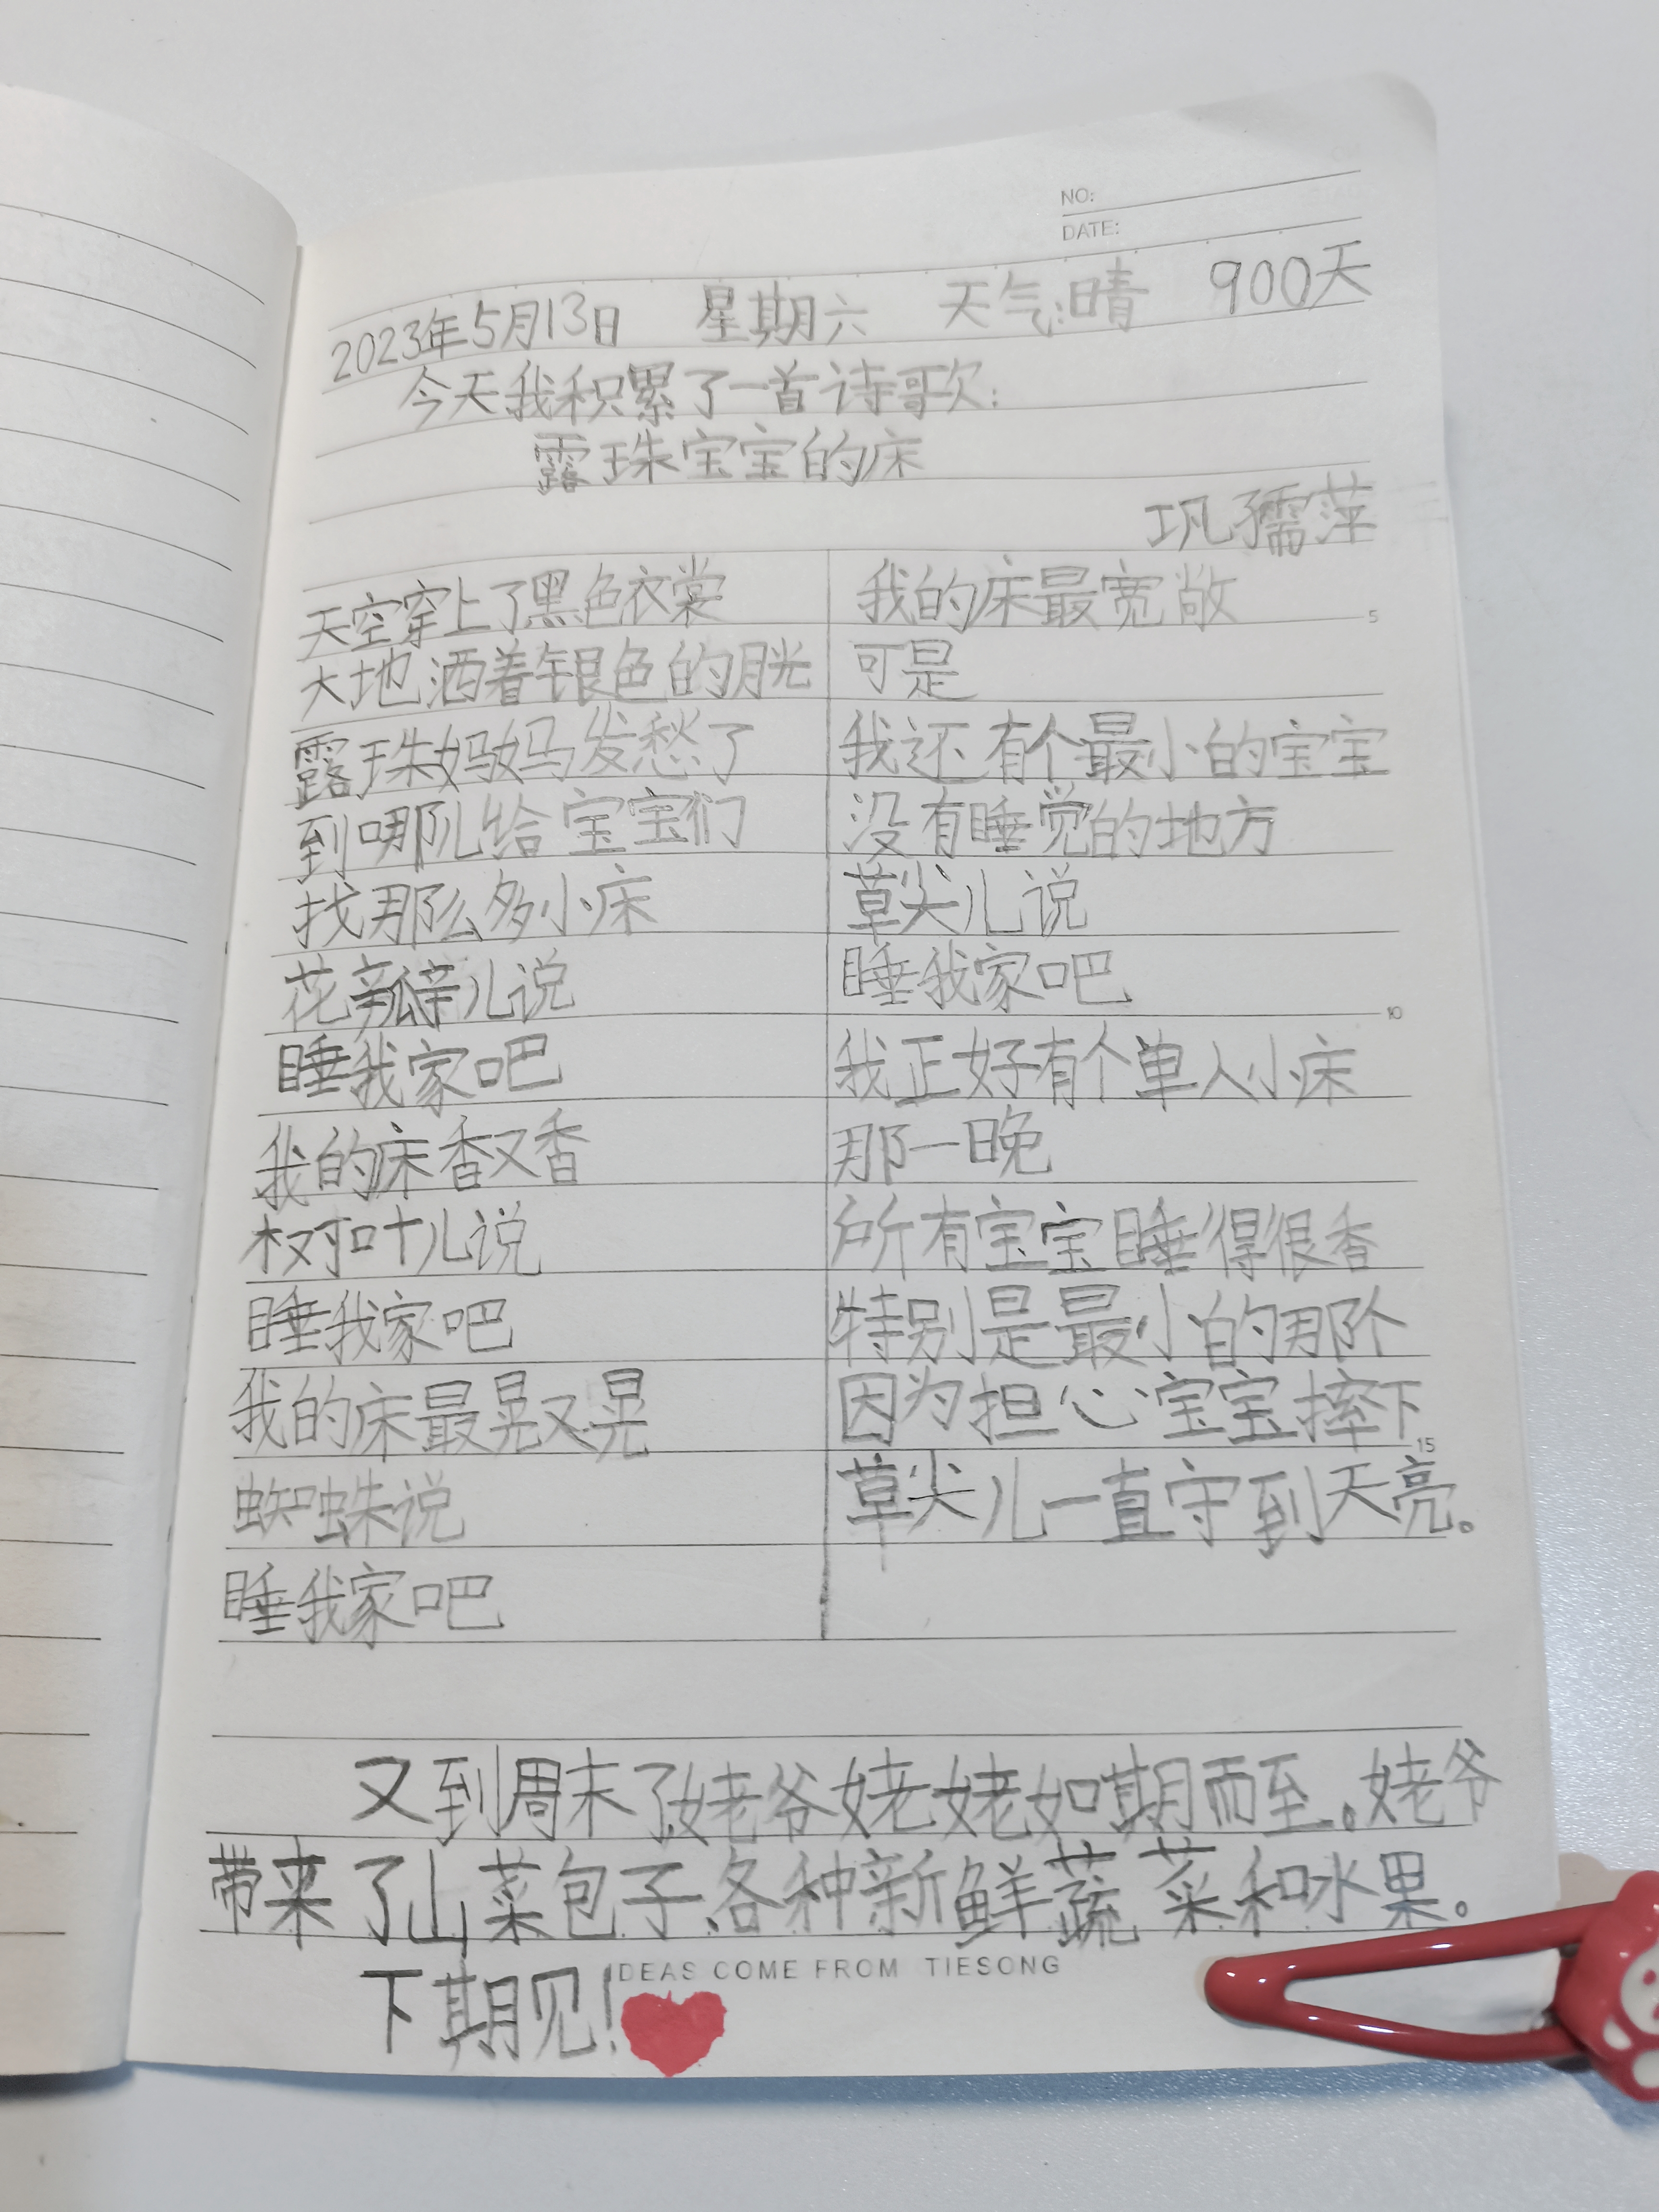 NO:
DATE:
2023年5月13日 星期六 天气:晴 900天
今天我积累了一首诗歌:
露珠宝宝的床
巩孺萍
天空穿上了黑色衣裳
大地洒着银色的月光
露珠妈妈发愁了
到哪儿给宝宝们
找那么多小床
花瓣儿说
睡我家吧
我的床香又香
树叶儿说
睡我家吧
我的床最晃又晃
蜘蛛说
睡我家吧
我的床最宽敞
5
可是
我还有个最小的宝宝
没有睡觉的地方
草尖儿说
睡我家吧
10
我正好有个单人小床
那一晚
所有宝宝睡得很香
特别是最小的那个
因为担心宝宝摔下
15
草尖儿一直守到天亮。
又到周末了,姥爷姥姥如期而至。姥爷
带来了山菜包子、各种新鲜蔬菜和水果。
下期见!
IDEAS COME FROM TIESONG